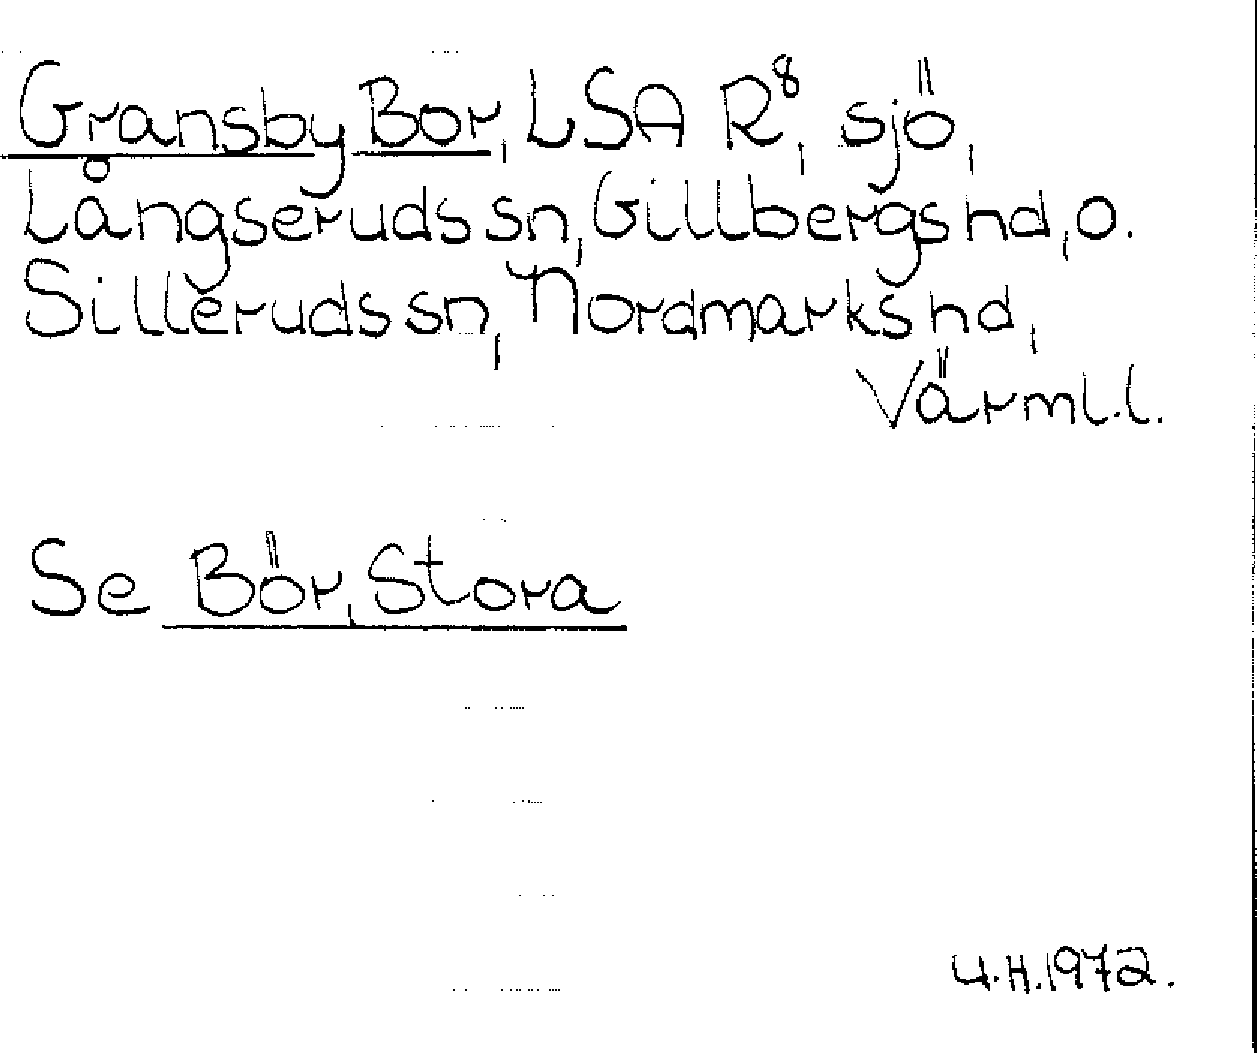 Gransby Bor, LSA R⁸, sjö,
Långseruds sn, Gillbergs hd, o.
Silleruds sn, Nordmarks hd,
Värml.l.
Se Bör, Stora
U.H.1972.